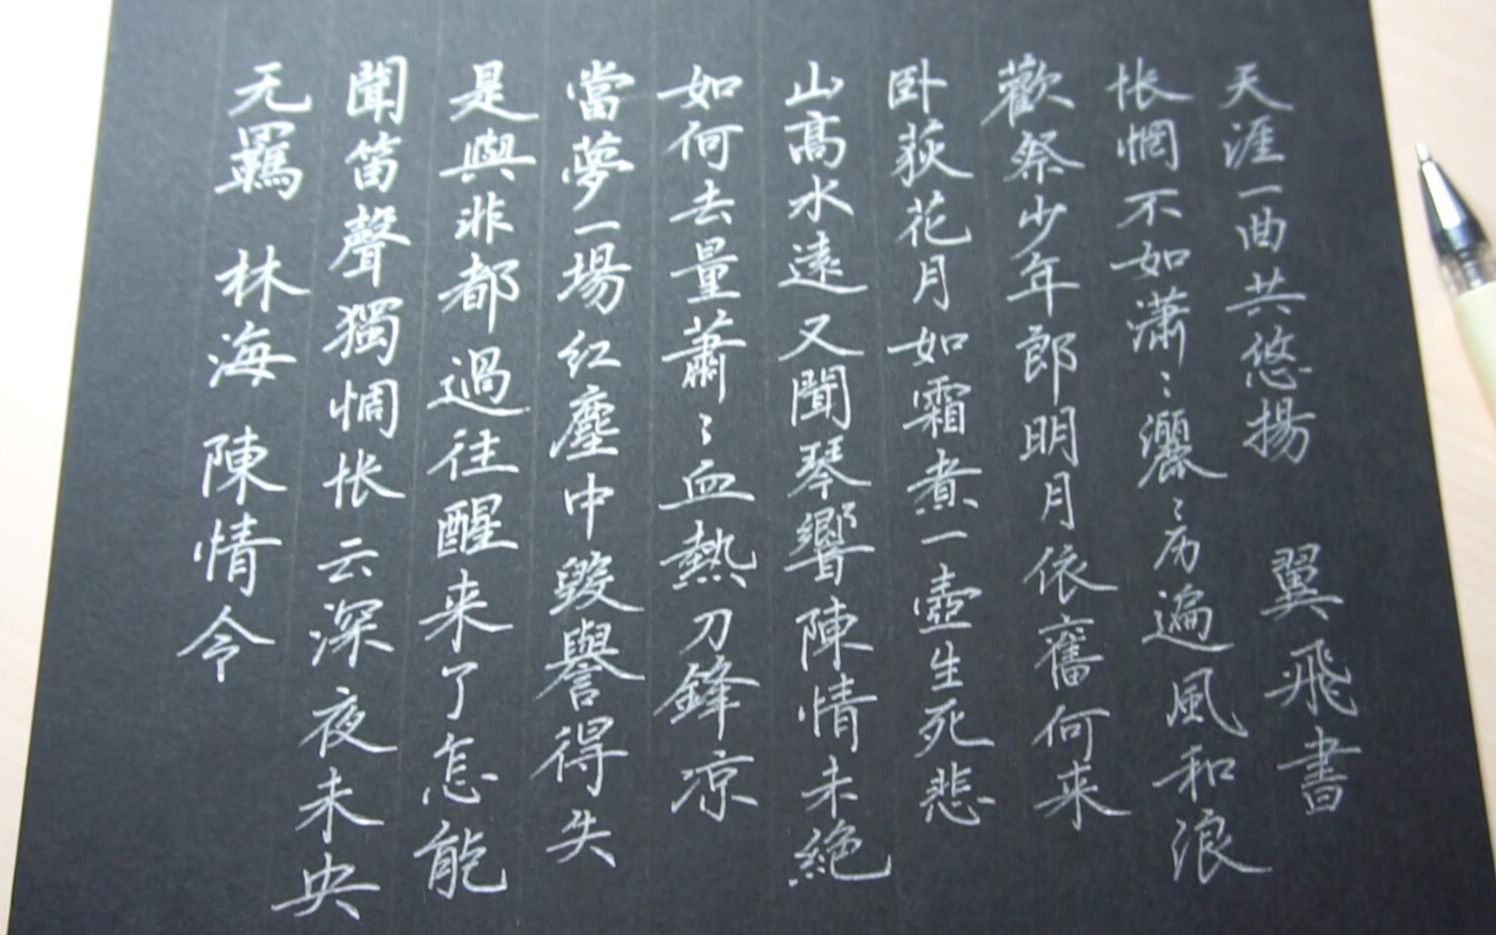 无羈 林海 陳情令
聞笛聲獨惆怅云深夜未央
是與非都過往醒来了怎能
當夢一場红塵中毀譽得失
如何去量蕭〻血熱刀鋒凉
山髙水遠又聞琴響陳情未絶
卧荻花月如霜煮一壺生死悲
歡祭少年郎明月依舊何来
怅惘不如瀟〻灑〻历遍風和浪
天涯一曲共悠揚
翼飛書